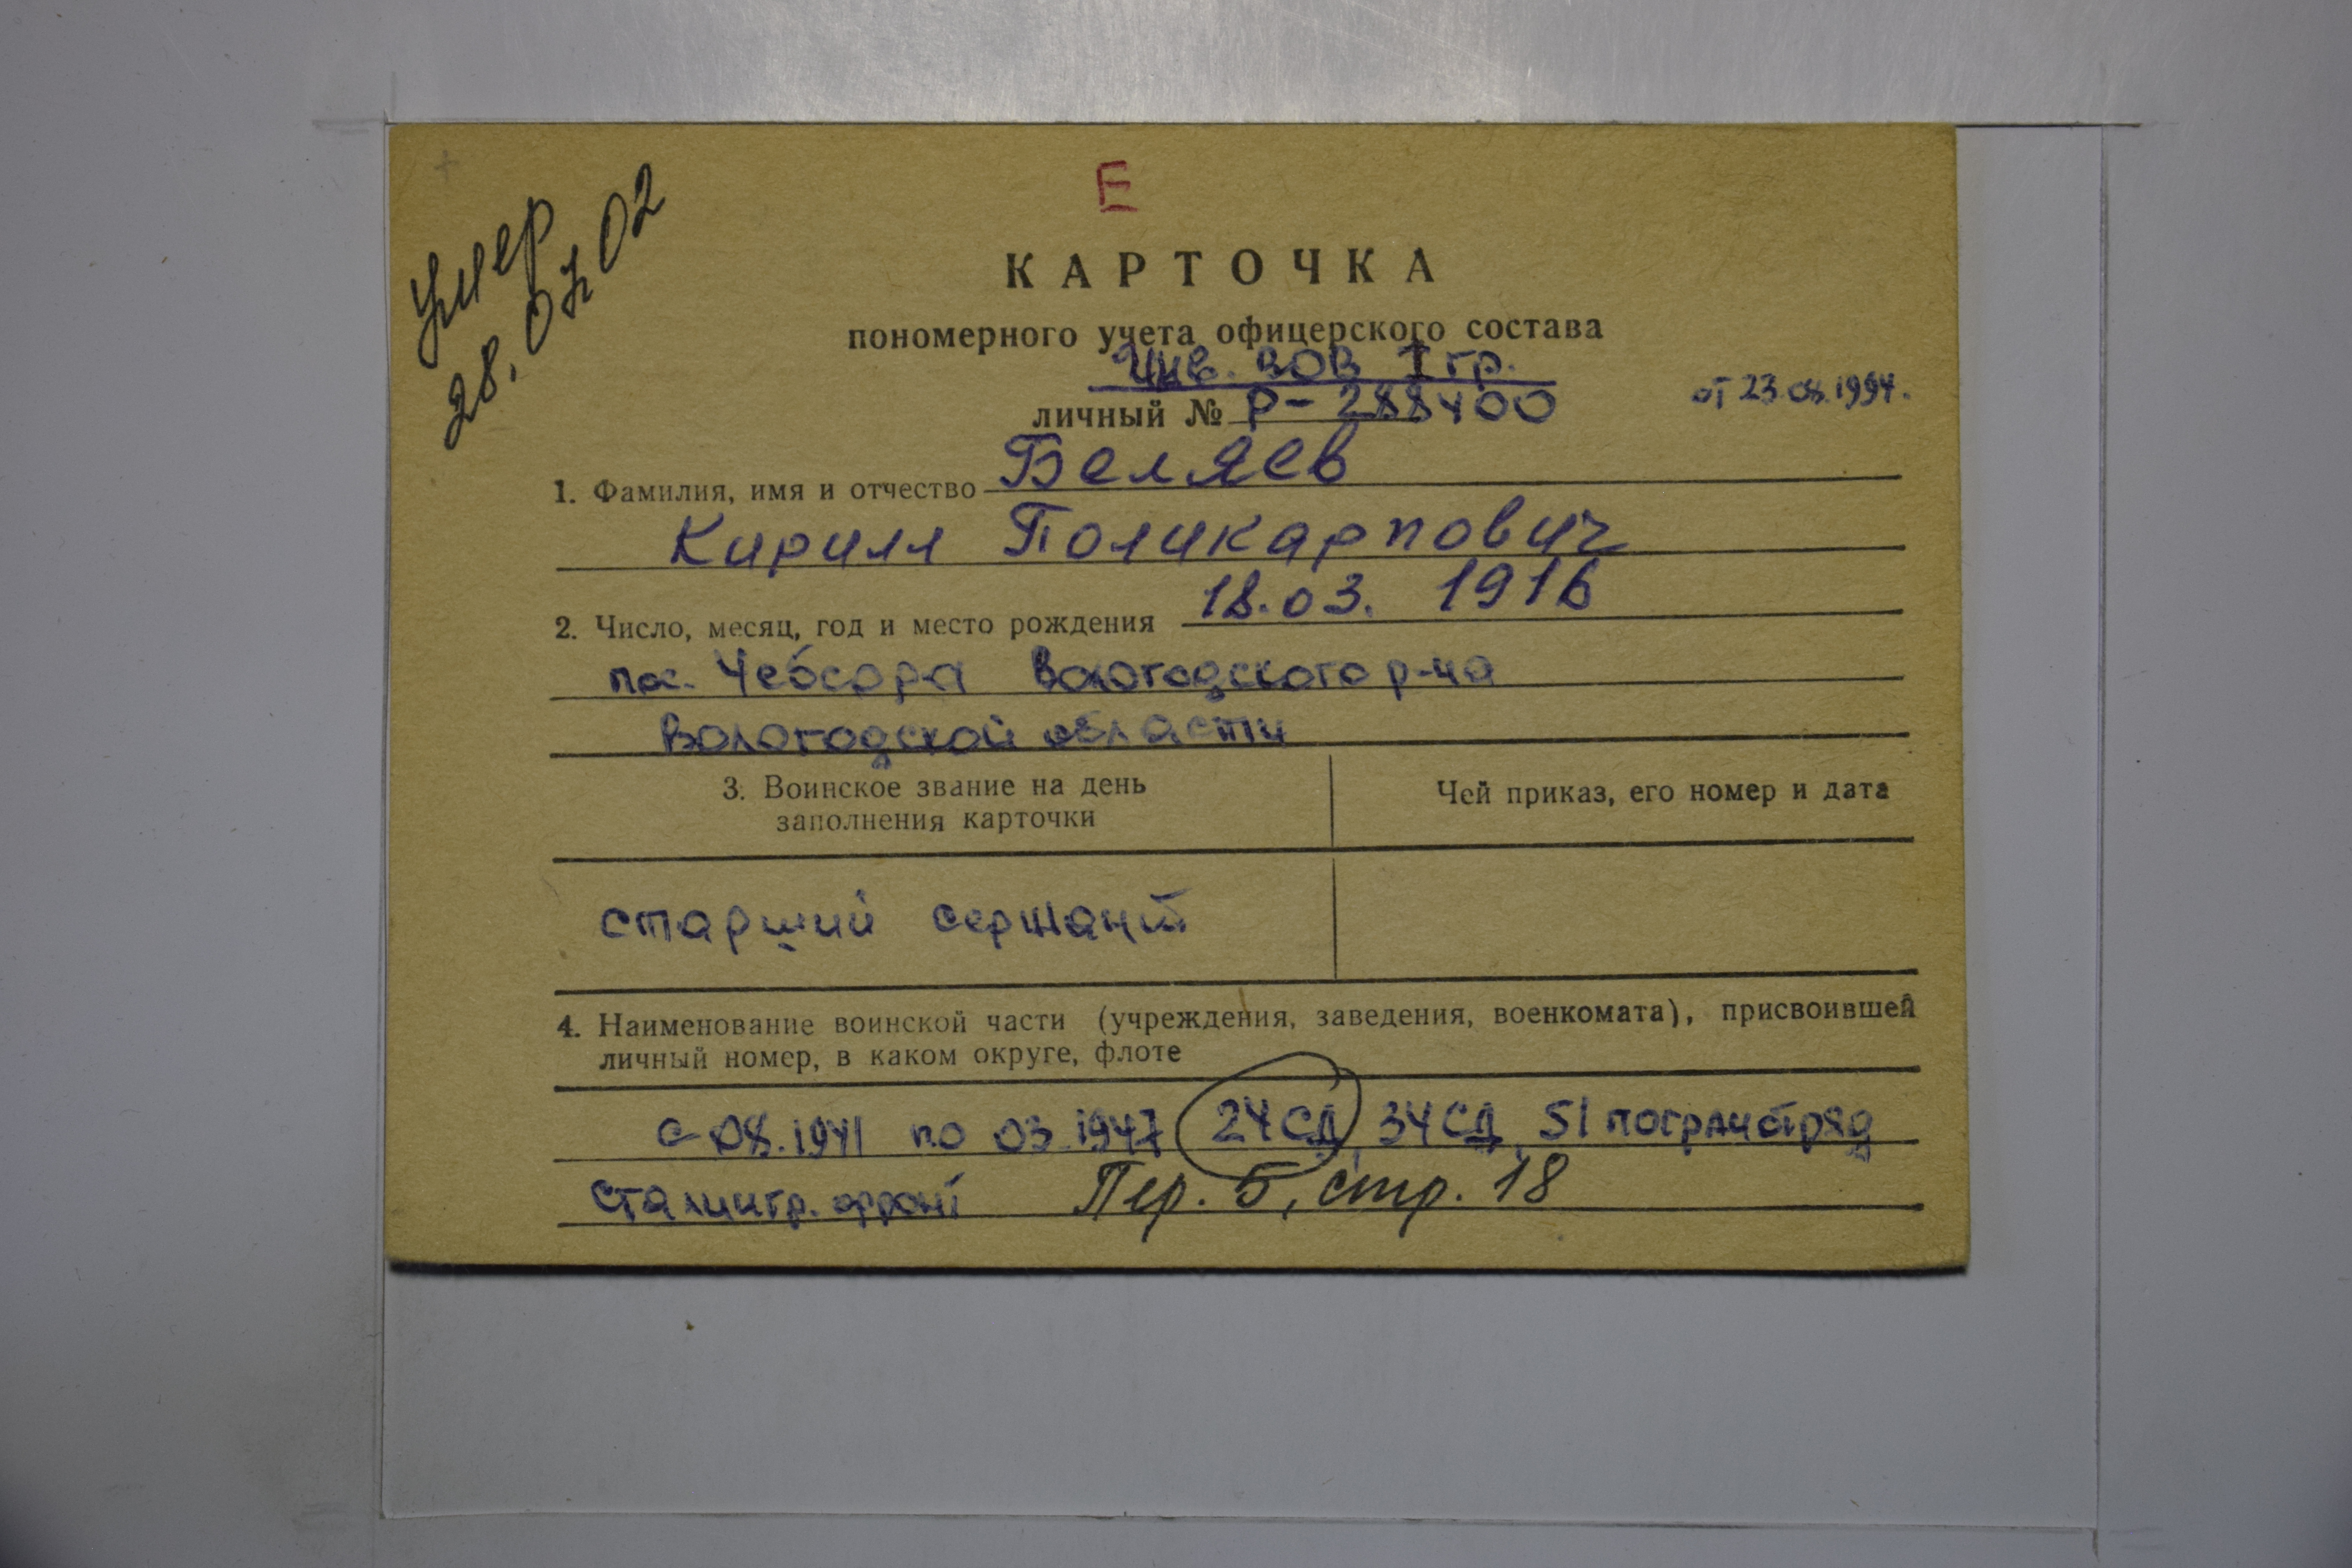 Умер
28.07.02
Е
КАРТОЧКА
пономерного учета офицерского состава
Инв. ВОВ I гр.
личный № Р-288400 от 23.08.1994.
1. Фамилия, имя и отчество Беляев
Кирилл Поликарпович
2. Число, месяц, год и место рождения 18.03. 1916
пос. Чебсара Вологодского р-на
Вологодской области
3. Воинское звание на день
заполнения карточки
Чей приказ, его номер и дата
старший сержант
4. Наименование воинской части (учреждения, заведения, военкомата), присвоившей
личный номер, в каком округе, флоте
с 08.1941 по 03.1947 24 СД, 34 СД, 51 погранотряд
Сталингр. фронт Пер. 5, стр. 18